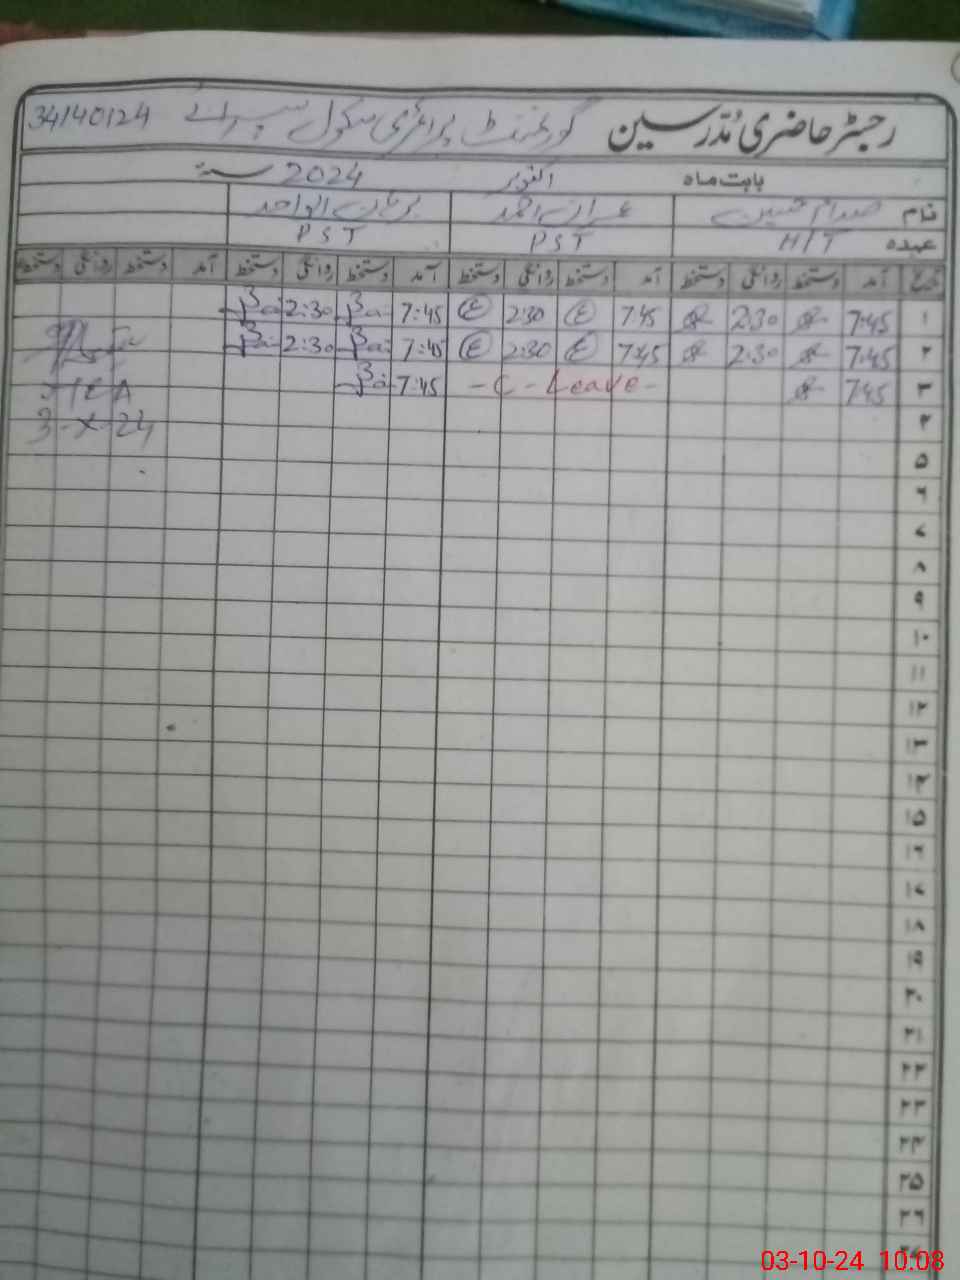 رجسٹر حاضری مُدّرسین گورنمنٹ پرائمری سکول 34140124
بابت ماہ اکتوبر 2024 سنہ
نام صدام حسین عمران احمد برہان الواحد
عہدہ H/T PST PST
تاریخ آمد دستخط روانگی دستخط آمد دستخط روانگی دستخط آمد دستخط روانگی دستخط آمد دستخط روانگی دستخط
۱ 7:45 2:30 7:45 ع 2:30 ع 7:45 2:30
۲ 7:45 2:30 7:45 ع 2:30 ع 7:45 2:30
۳ 7:45 - C - Leave - 7:45
۴ 3-X-24
۵
۶
۷
۸
۹
۱۰
۱۱
۱۲
۱۳
۱۴
۱۵
۱۶
۱۷
۱۸
۱۹
۲۰
۲۱
۲۲
۲۳
۲۴
۲۵
۲۶
۲۷
03-10-24 10:08